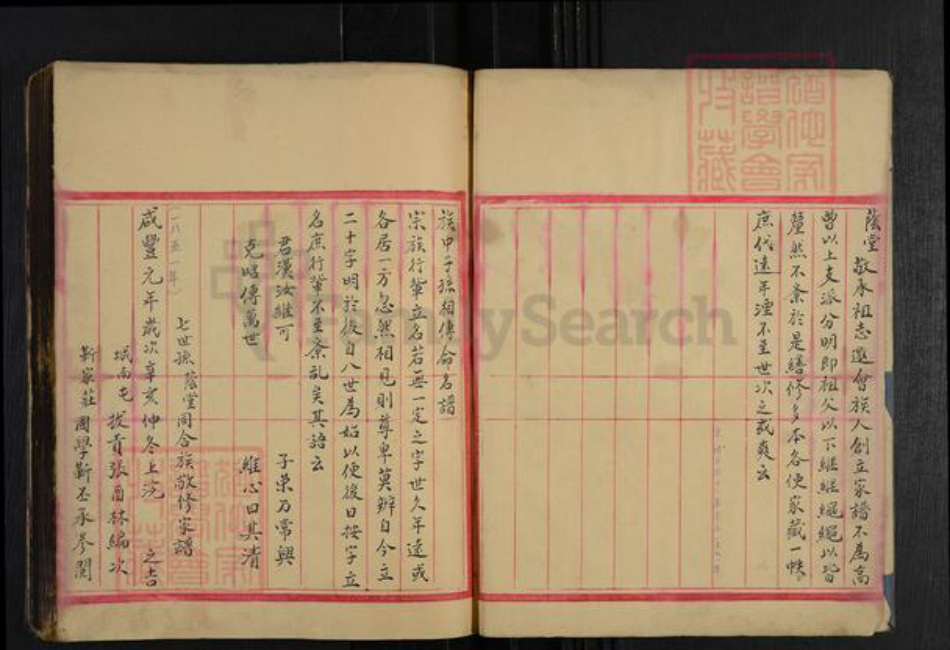 蔭堂敬承祖志邀會族人創立家譜不為高
曾以上支派分明即祖父以下繼繼繩繩以皆
釐然不紊於是繕修多本各使家藏一帙
庶代遠年湮不至世次之或爽云
族中子孫相傳命名譜
宗族行輩立名若無一定之字世久年遠或
各居一方忽然相見則尊卑莫辨自今立
二十字明於後自八世為始以便後日按字立
名庶行輩不至紊乱矣其譜云
君漢汝維可 子荣万常興
克昭傳萬世 維心曰其清
七世孫蔭堂同合族敬修家譜
(一八五一年)
咸豐元年歲次辛亥仲冬上浣 之吉
坭南屯 拔貢張酉林編次
靳家莊 國學靳丕承參閱
FamilySearch